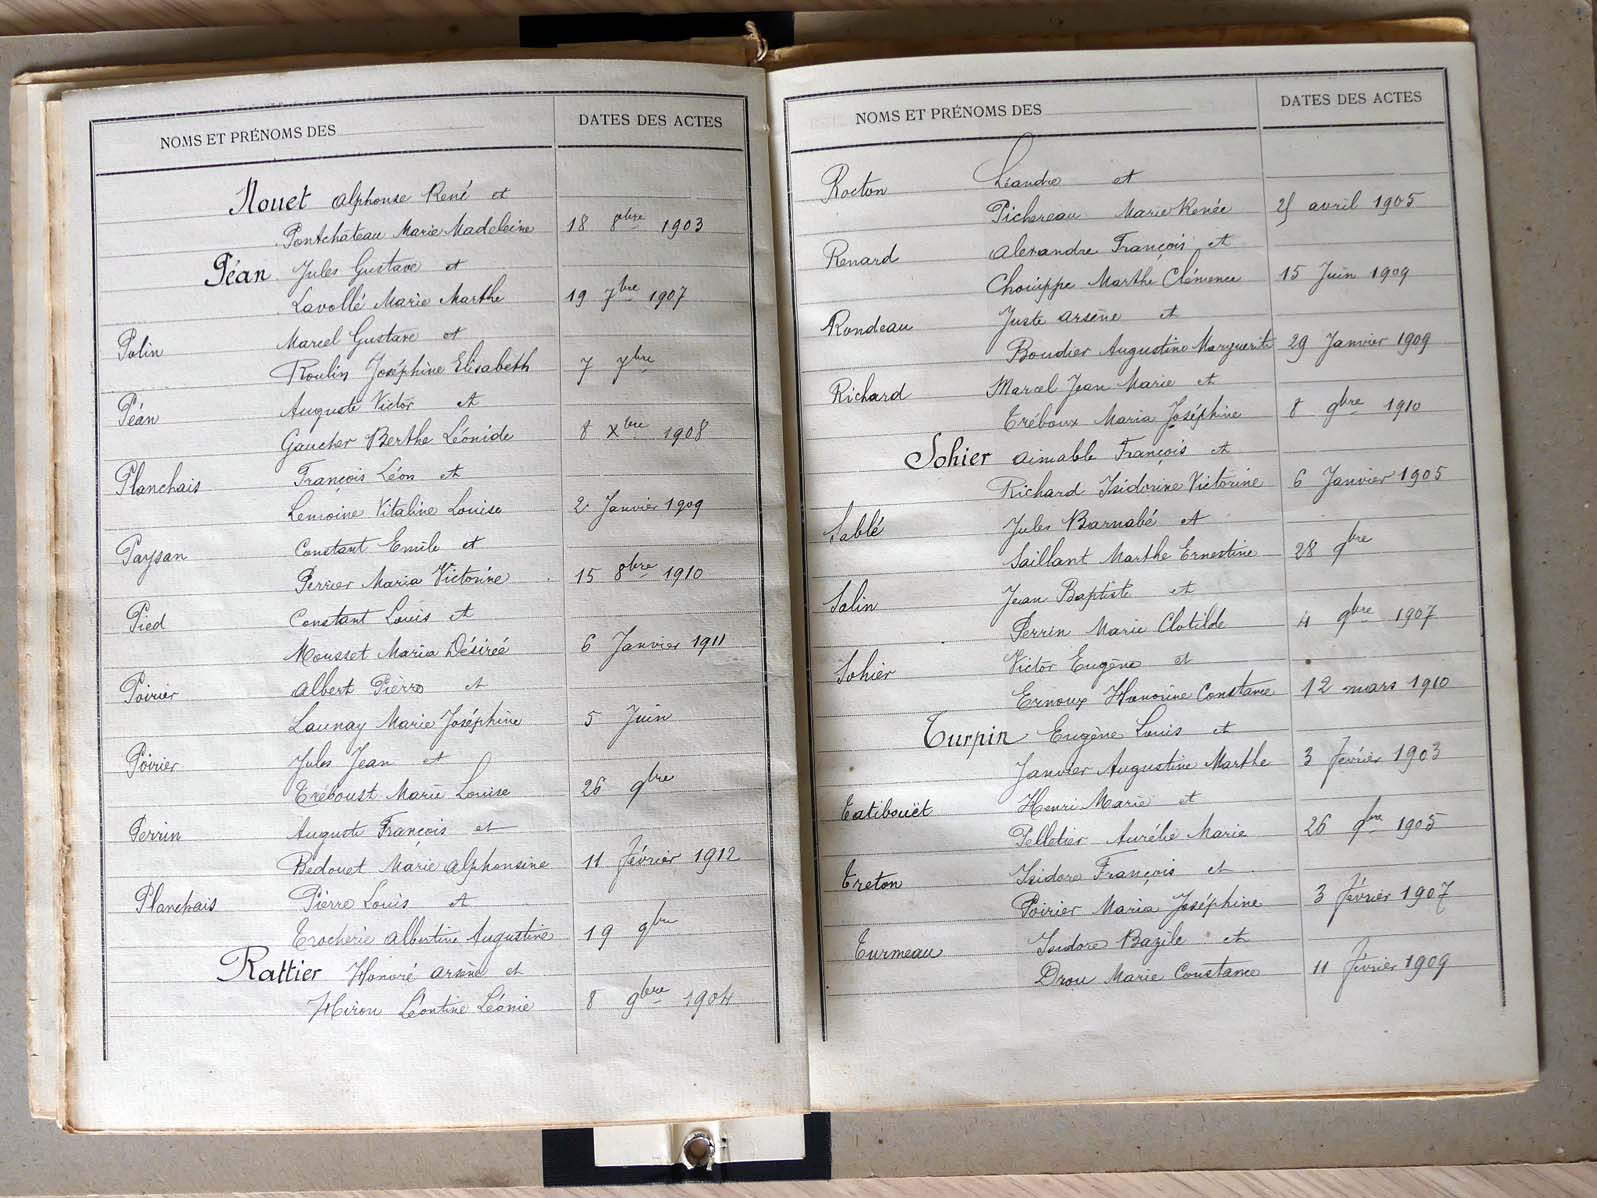 NOMS ET PRÉNOMS DES DATES DES ACTES
Nouet Alphonse René et
Pontchateau Marie Madeleine 18 8bre 1903
Péan Jules Gustave et
Lavollé Marie Marthe 19 7bre 1907
Polin Marcel Gustave et
Roulin Joséphine Elisabeth 7 xbre
Péan Auguste Victor et
Gaucher Berthe Léonide 8 Xbre 1908
Planchais François Léon et
Lemoine Vitaline Louise 2 Janvier 1909
Paysan Constant Emile et
Perrier Maria Victorine 15 8bre 1910
Pied Constant Louis et
Mousset Maria Désirée 6 Janvier 1911
Poirier Albert Pierre et
Launay Marie Joséphine 5 Juin
Poirier Jules Jean et
Tréboust Marie Louise 26 9bre
Perrin Auguste François et
Bedouet Marie Alphonsine 11 février 1912
Planchais Pierre Louis et
Trocherie Albertine Augustine 19 9bre
Rattier Honoré Arsène et
Hirou Léontine Léonie 8 9bre 1904
NOMS ET PRÉNOMS DES DATES DES ACTES
Rocton Léandre et
Pichereau Marie Renée 25 avril 1905
Renard Alexandre François et
Chouippe Marthe Clémence 15 Juin 1909
Rondeau Juste Arsène et
Boudier Augustine Marguerite 29 Janvier 1909
Richard Marcel Jean Marie et
Tréboux Maria Joséphine 8 9bre 1910
Sohier Aimable François et
Richard Isidorine Victorine 6 Janvier 1905
Sablé Jules Barnabé et
Saillant Marthe Ernestine 28 9bre
Salin Jean Baptiste et
Perrin Marie Clotilde 4 9bre 1907
Sohier Victor Eugène et
Ernoux Honorine Constance 12 mars 1910
Turpin Eugène Louis et
Janvier Augustine Marthe 3 février 1903
Tatibouët Henri Marie et
Pelletier Aurélie Marie 26 9bre 1905
Treton Isidore François et
Poirier Maria Joséphine 3 février 1907
Turmeau Isidore Bazile et
Drou Marie Constance 11 février 1909